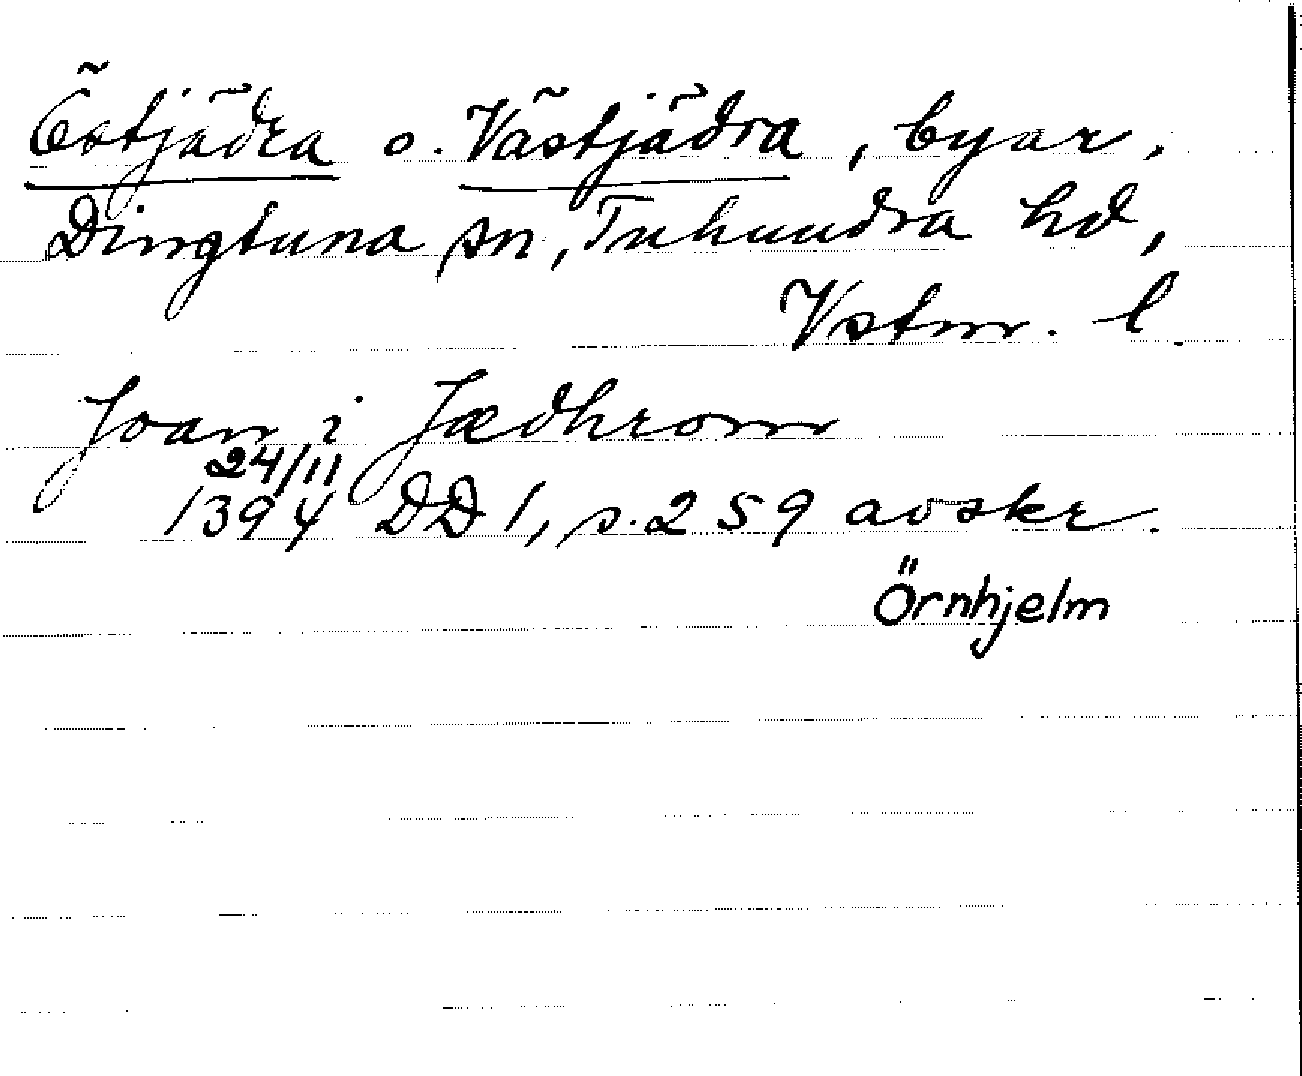 Östjädra o. Västjädra, byar,
Dingtuna sn, Tuhundra hd,
Vstm. l.
Joan i Jædhrom
24/11
1394 DD 1, s. 259 avskr.
Örnhjelm